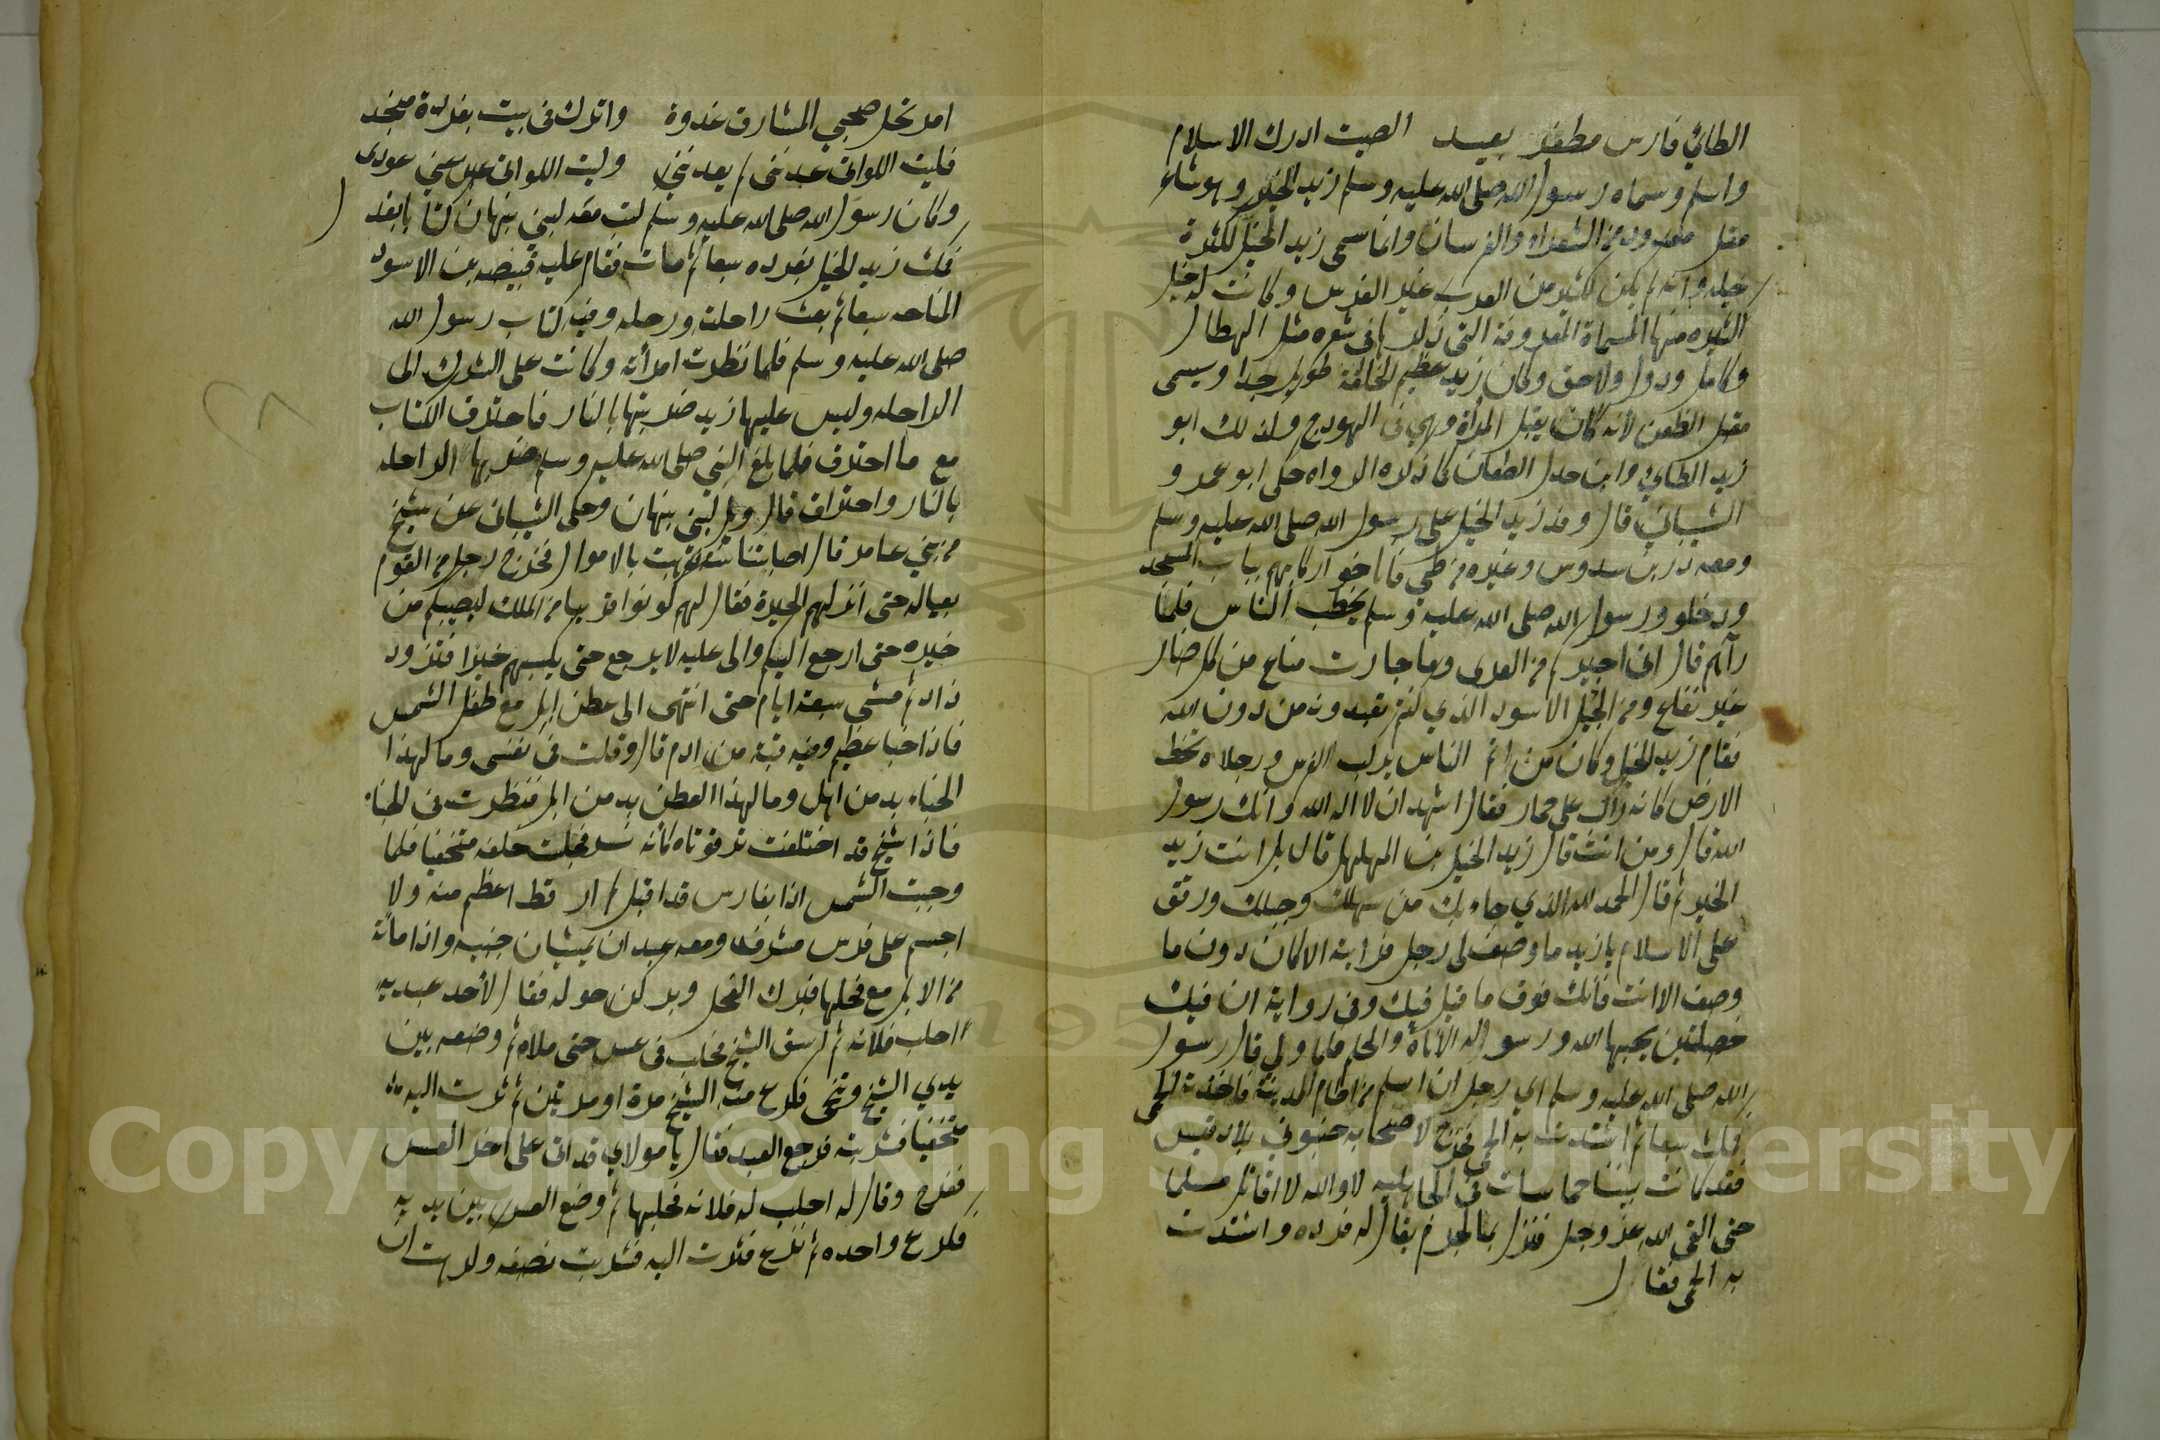 الطائي فارس مظفر بعيد الصيت ادرك الاسلام
واسلم وسماه رسول الله صلى الله عليه وسلم زيد الخير وهو شاعر
مقل معدود من الشعراء والفرسان وانما سمى زيد الخيل لكثرة
خيله وانه لم يكن لكثير من العرب غير الفرس وكانت له خيل
كثيره منها المسماة المعروفة التي ذكرها في شعره مثل الهطال
وكامل ودول ولاحق وكان زيد عظيم الخلقة طويل جدا ويسمى
مقبل الظعن لأنه كان يقبل المرأة وهي في الهودج ولذلك ابو
زيد الطائي وابن جدل الطعان كما ذكره الرواه حكى ابو عمرو
الشيباني قال وفد زيد الخيل على رسول الله صلى الله عليه وسلم
ومعه زر بن سدوس وغيره من طي فاناخوا ركابهم بباب المسجد
ودخلو ورسول الله صلى الله عليه وسلم يخطب الناس فلما
رآهم قال انى اخير لكم من العزى وما حازت مناع من كل ضار
غير نفاع ومن الجبل الاسود الذي كنتم تعبدونه من دون الله
فقام زيد الخيل وكان من اتم الناس يركب الفرس ورجلاه تخط
الارض كانه راكب على حمار فقال اشهد ان لا اله الا الله وانك رسول
الله قال ومن انت قال زيد الخيل بن المهلهل قال بل انت زيد
الخير ثم قال الحمد لله الذي جاء بك من سهلك وجبلك ورقق
على الاسلام يا زيد ما وصف لي رجل فرايته الا كان دون ما
وصف الا انت فانك فوق ما قيل فيك وفي رواية ان فيك
خصلتين يحبها الله ورسوله الأناة والحلم فلما ولى قال رسول
الله صلى الله عليه وسلم اي رجل ان اسلم من اطام المدينة فاخذته الحمى
فمكث سبعا ثم اشتدت به الحمى فخرج لاصحابه جنبوني بلاد قيس
فقد كانت بيننا حماسات في الجاهليه لا والله لا اقاتل مسلما
حتى القى الله عز وجل فنزل بماء لجرم يقال له فرده واشتدت
به الحمى فقال
امرتحل صحبي المشارق غدوة واترك في بيت بفردة منجد
فليت اللواتى عدننى لم يعدننى وليت اللواتى غبن عني عودى
وكان رسول الله صلى الله عليه وسلم كتب معه لبني نبهان كتابا بفد
فمكث زيد الخيل بفرده سبعا ثم مات فقام عليه قبيصه بن الاسود
المناحه سبعا ثم بعث راحلته ورحله وفيه كتاب رسول الله
صلى الله عليه وسلم فلما نظرت امرأته وكانت على الشرك الى
الراحله وليس عليها زيد ضربتها بالنار فاحترق الكتاب
مع ما احترق فلما بلغ النبي صلى الله عليه وسلم ضربها الراحله
بالنار واحتراق قال ويل لبني نبهان وحكى الشيبانى عن شيخ
من بني عامر قال اصابتنا سنة ذهبت بالاموال فخرج رجل من القوم
بعياله حتى انزلهم الحيرة فقال لهم كونوا قريبا من الملك ليصيبكم من
خيره حتى ارجع اليكم والى عليه لا يرجع حتى يكسبهم خيرا فتزود
زادا ثم مشى سبعة ايام حتى انتهى الى عطن ابل مع طفل الشمس
فاذا خبا عظيم وفيه قبة من ادم قال وقلت في نفسى وما لهذا
الخباء بد من اهل وما لهذا العطن بد من ابل فنظرت في الخباء
فاذا شيخ قد اختلفت ترقوتاه كأنه نسر فجلست خلفه متخفيا فلما
وجبت الشمس اذا بفارس قد اقبل لم ار قط اعظم منه ولا
اجسم على فرس مشرف ومعه عبدان يمشيان جنبيه واذا مائة
من الابل مع فحلها فبرك الفحل وبركن حوله فقال لأحد عبديه
احلب فلانه ثم اسق الشيخ فحلب في عس حتى ملاه ثم وضعه بين
يدي الشيخ وتنحى فكرع منه الشيخ مرة او مرتين ثم ثرت اليه
متخفيا فشربته فرجع العبد فقال يا مولاي قد اتى على اخر العس
ففرح وقال له احلب له فلانه فحلبها ثم وضع العس بين يديه
فكرع واحده ثم نزع فثرت اليه فشربت نصفه وكرهت ان
Copyright © King Saud University